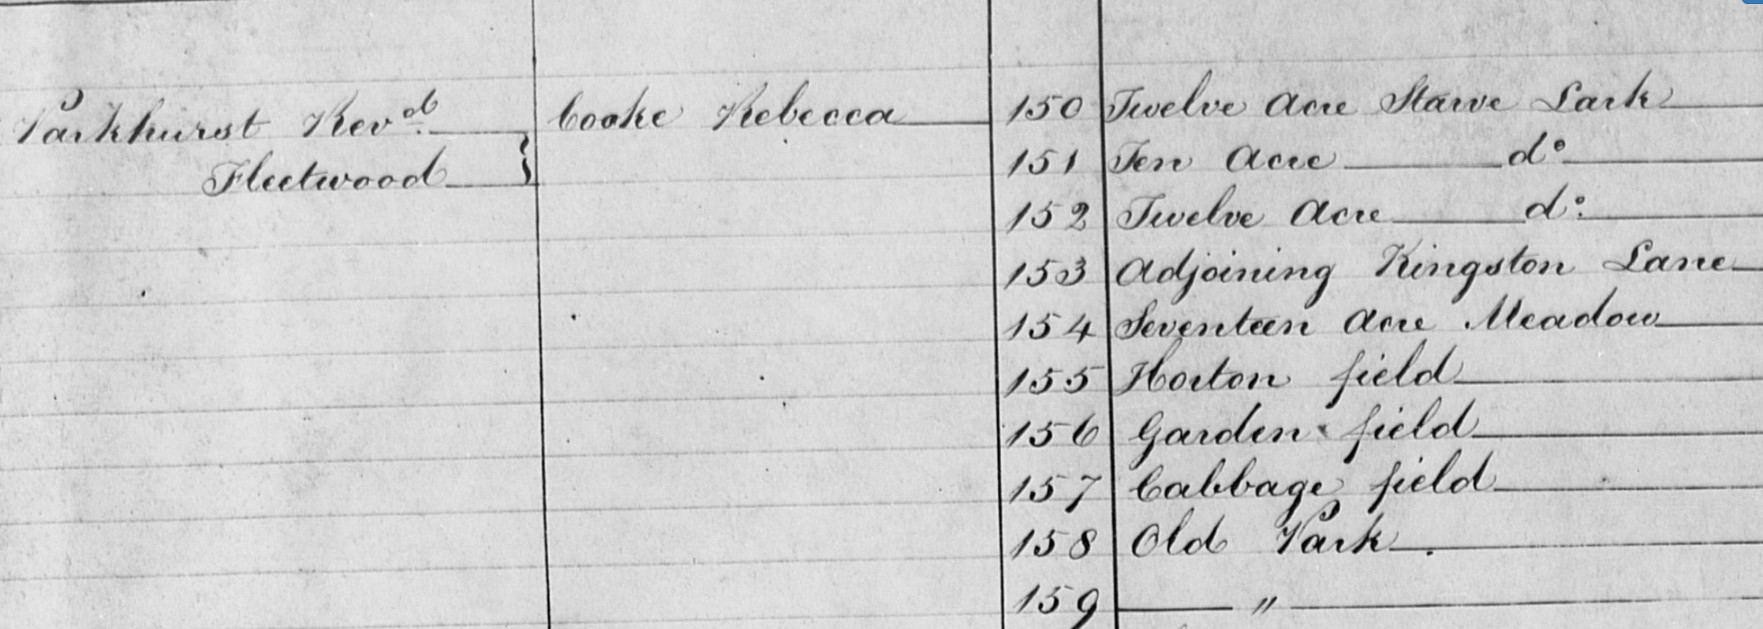 Parkhurst Rev.d Cooke Rebecca 150 Twelve Acre Starve Lark
Fleetwood } 151 Ten Acre do
152 Twelve Acre do:
153 Adjoining Kingston Lane
154 Seventeen Acre Meadow
155 Horton field
156 Garden field
157 Cabbage field
158 Old Park.
159 "